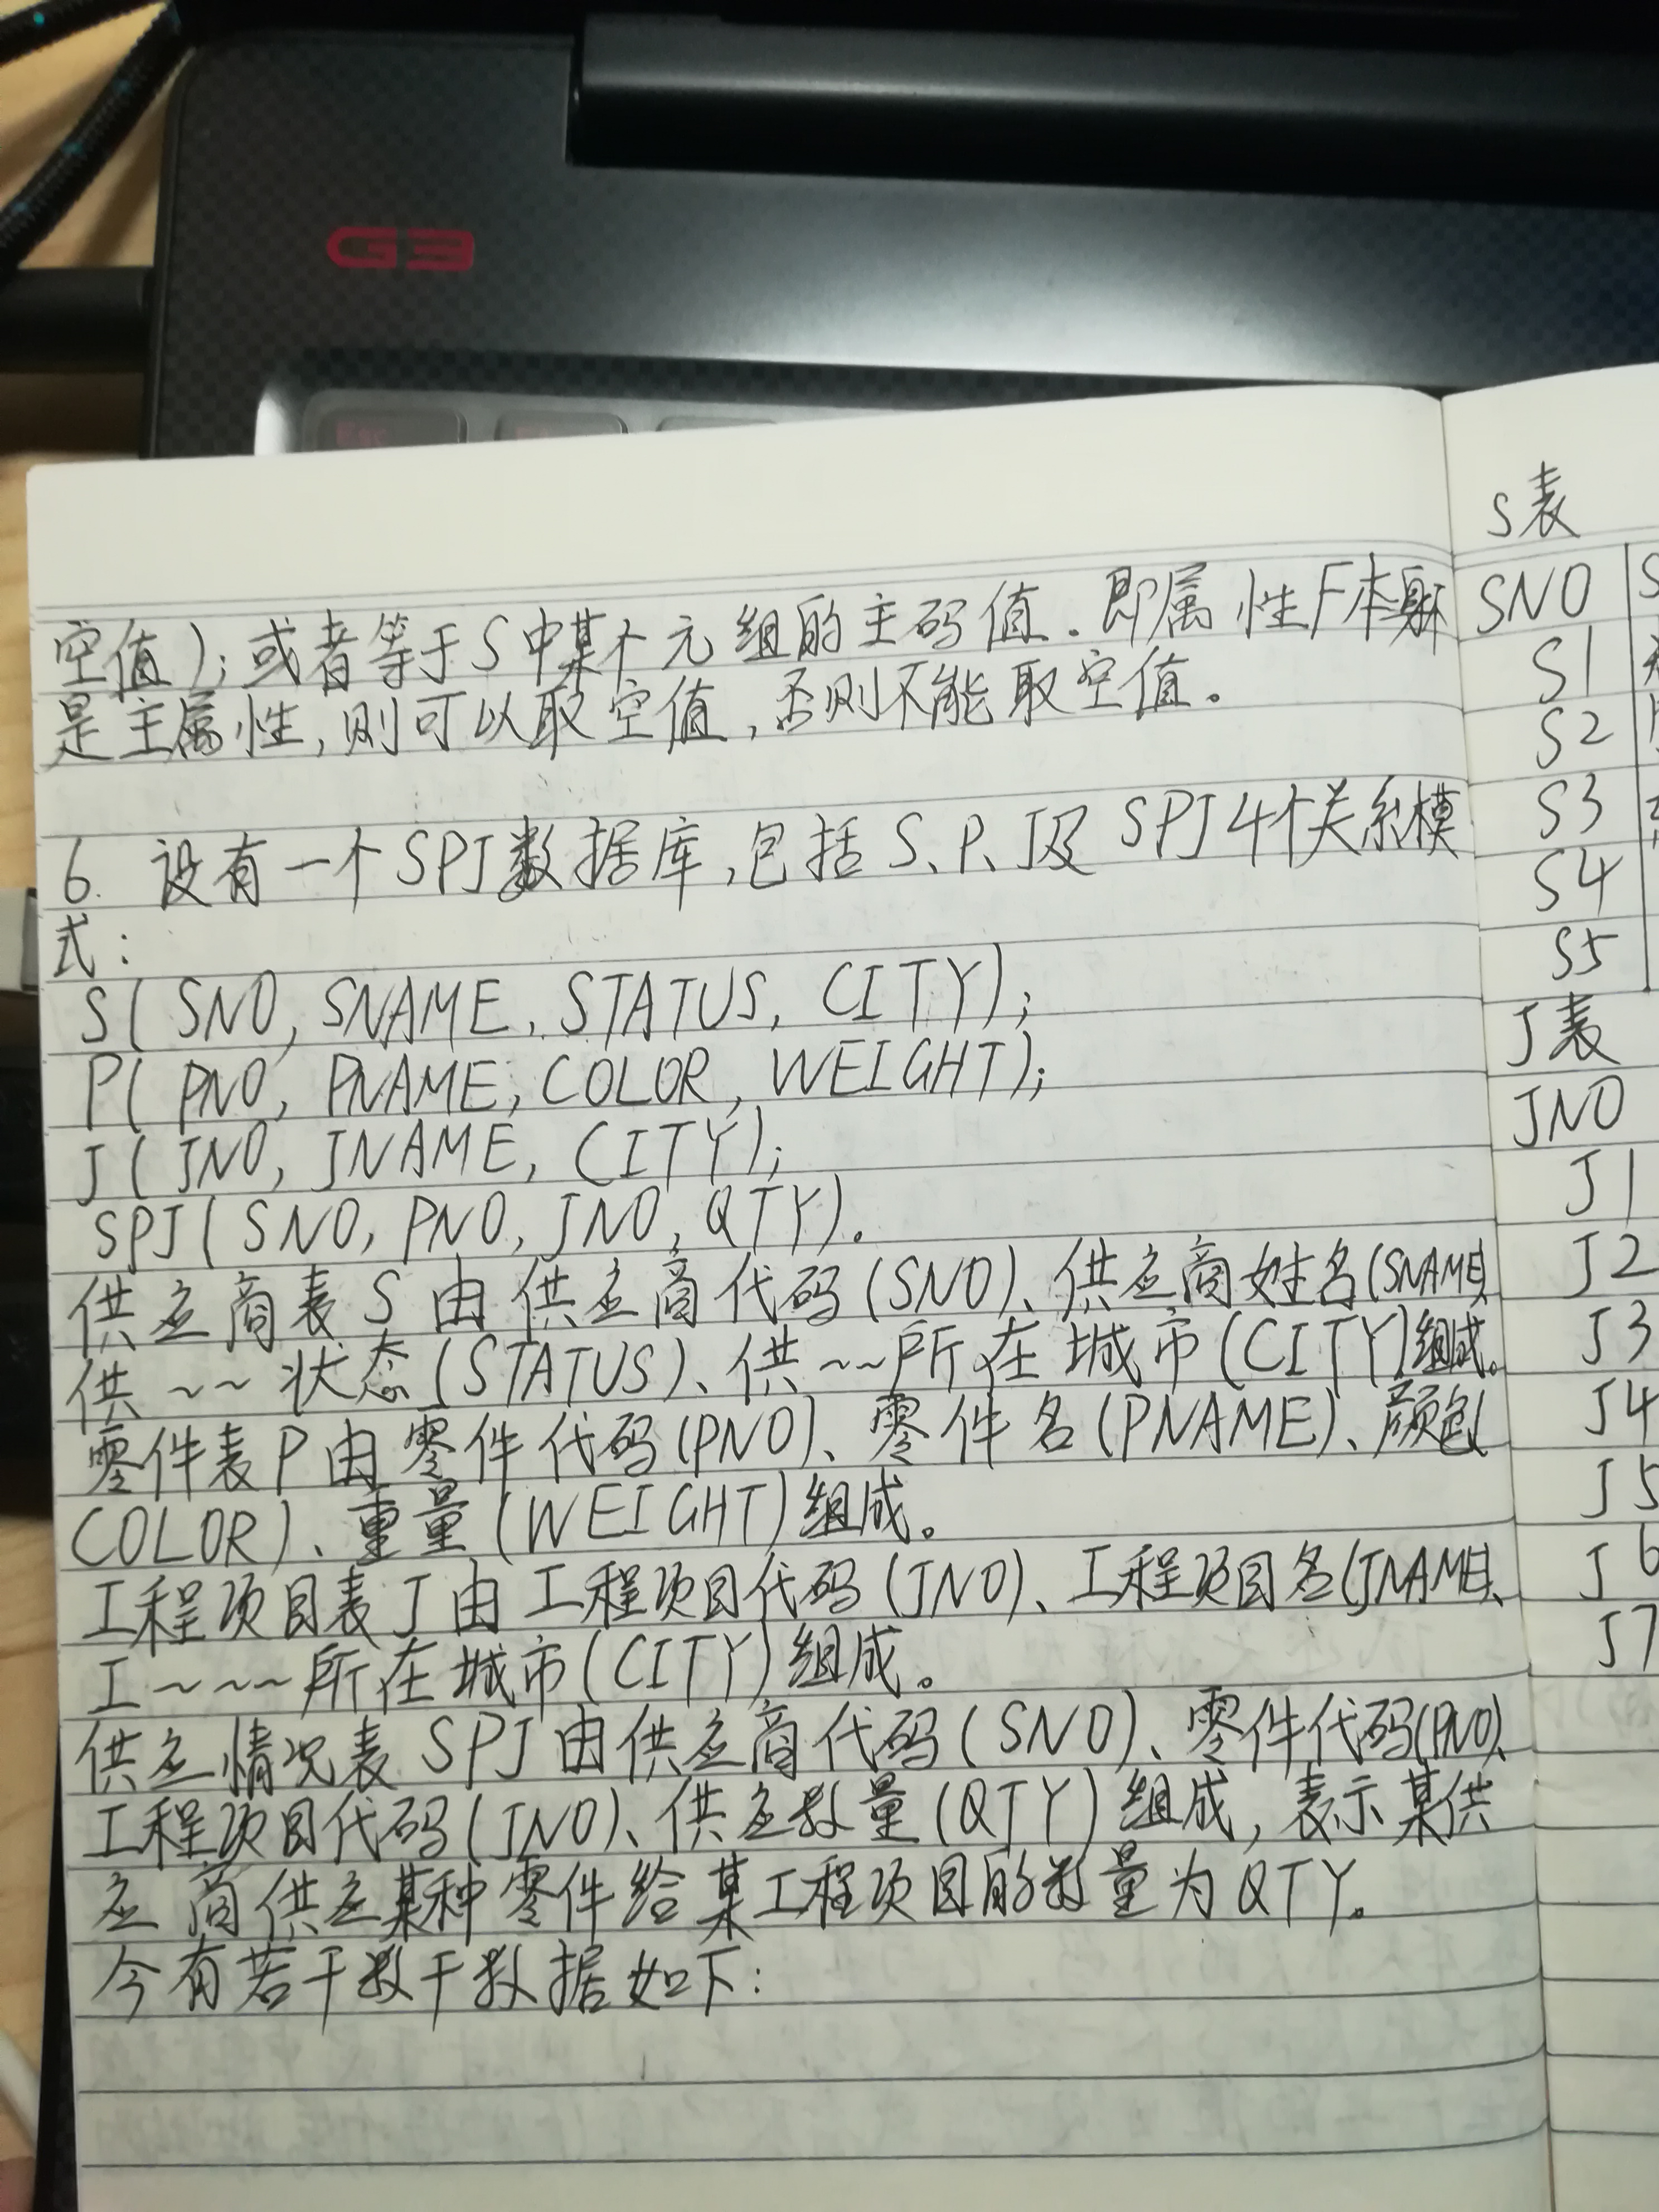 G3
Esc
空值);或者等于S中某个元组的主码值.即属性F本身不
是主属性,则可以取空值,否则不能取空值。
6. 设有一个SPJ数据库,包括S、P、J及SPJ4个关系模
式:
S(SNO,SNAME,STATUS,CITY);
P(PNO,PNAME,COLOR,WEIGHT);
J(JNO,JNAME,CITY);
SPJ(SNO,PNO,JNO,QTY)。
供应商表S由供应商代码(SNO)、供应商姓名(SNAME)、
供~~状态(STATUS)、供~~所在城市(CITY)组成。
零件表P由零件代码(PNO)、零件名(PNAME)、颜色(
COLOR)、重量(WEIGHT)组成。
工程项目表J由工程项目代码(JNO)、工程项目名(JNAME)、
工~~~所在城市(CITY)组成。
供应情况表SPJ由供应商代码(SNO)、零件代码(PNO)、
工程项目代码(JNO)、供应数量(QTY)组成,表示某供
应商供应某种零件给某工程项目的数量为QTY。
今有若干数干数据如下:
S表
SNO
S1
S2
S3
S4
S5
J表
JNO
J1
J2
J3
J4
J5
J6
J7